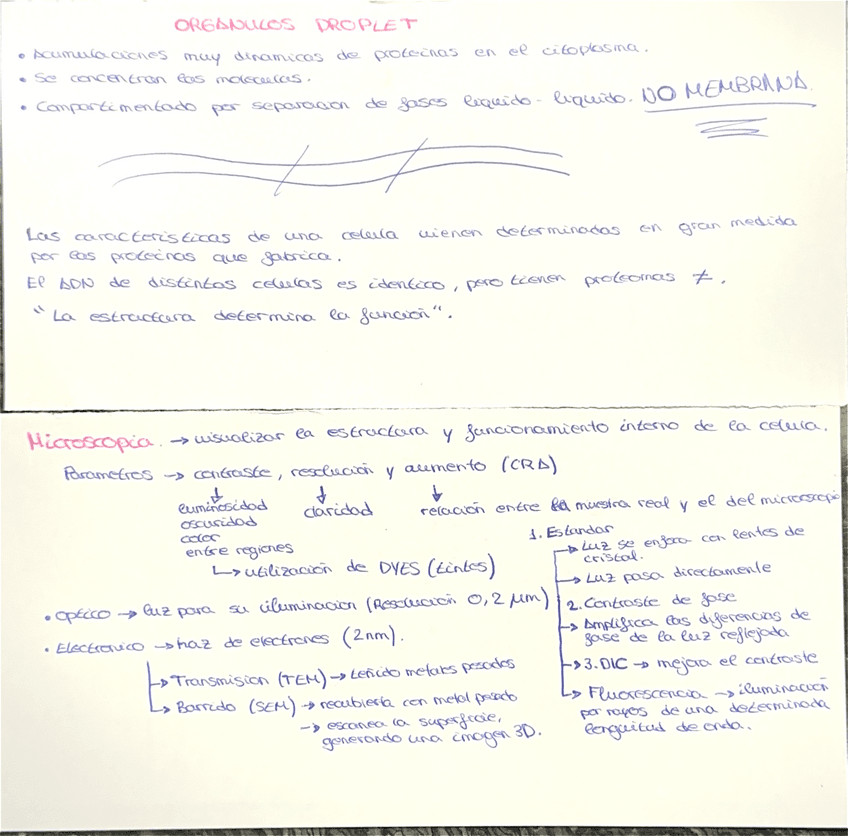 ORGANULOS DROPLET
• Acumulaciones muy dinamicas de proteinas en el citoplasma.
• Se concentran las moleculas.
• Compartimentado por separacion de fases liquido - liquido. NO MEMBRANA.
Las caracteristicas de una celula vienen determinadas en gran medida
por las proteinas que fabrica.
El ADN de distintas celulas es identico, pero tienen proteomas ≠.
"La estructura determina la función".
Microscopia. → visualizar la estructura y funcionamiento interno de la celula.
Parametros → contraste, resolución y aumento (CRA)
luminosidad
oscuridad
color
entre regiones
claridad
relación entre la muestra real y el del microscopio
↳ utilización de DYES (tintes)
• Optico → luz para su iluminacion (Resolucion 0,2 µm)
1. Estandar
→ Luz se enfoca con lentes de
cristal.
→ Luz pasa directamente
2. Contraste de fase
→ Amplifica las diferencias de
fase de la luz reflejada
→ 3. DIC → mejora el contraste
↳ Fluorescencia → iluminación
por rayos de una determinada
longuitud de onda.
• Electronico → haz de electrones (2nm).
↳ Transmision (TEM) → teñido metales pesados
↳ Barrido (SEM) → recubierta con metal pesado
→ escanea la superficie,
generando una imagen 3D.